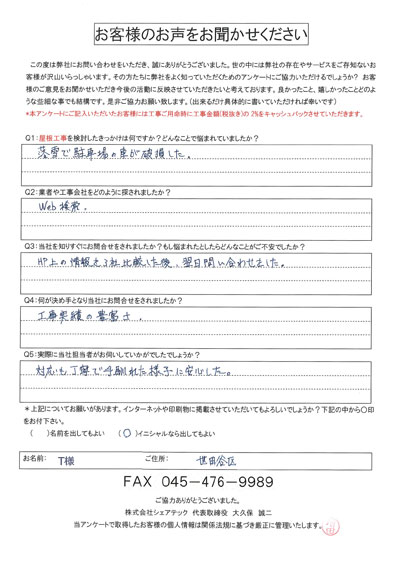 お客様のお声をお聞かせください
この度は弊社にお問い合わせをいただき、誠にありがとうございました。世の中には弊社の存在やサービスをご存知ないお
客様が沢山いらっしゃいます。その方たちに弊社をよく知っていただくためのアンケートにご協力いただけるでしょうか？ お客
様のご意見をお聞かせいただき今後の活動に反映させていただきたいと考えております。良かったこと、嬉しかったことどのよ
うな些細な事でも結構です。是非ご協力お願い致します。（出来るだけ具体的に書いていただければ幸いです）
*本アンケートにご記入いただいたお客様には工事ご用命時に工事金額(税抜き)の 2%をキャッシュバックさせていただきます。
Q1：屋根工事を検討したきっかけは何ですか？どんなことで悩まれていましたか？
落雪で駐車場の車が破損した。
Q2：業者や工事会社をどのように探されましたか？
Web検索。
Q3：当社を知りすぐにお問合せをされましたか？もし悩まれたとしたらどんなことがご不安でしたか？
HP上の情報を3社比較した後、翌日問い合わせました。
Q4：何が決め手となり当社にお問合せをされましたか？
工事実績の豊富さ。
Q5：実際に当社担当者がお伺いしていかがでしたでしょうか？
対応も丁寧で手馴れた様子に安心した。
＊上記についてお願いがあります。インターネットや印刷物に掲載させていただいてもよろしいでしょうか？下記の中から〇印
をお付下さい。
（ ）名前を出してもよい （〇）イニシャルなら出してもよい
お名前： T様 ご住所： 世田谷区
FAX 045-476-9989
ご協力ありがとうございました。
株式会社シェアテック 代表取締役 大久保 誠二
当アンケートで取得したお客様の個人情報は関係法規に基づき厳正に管理いたします。